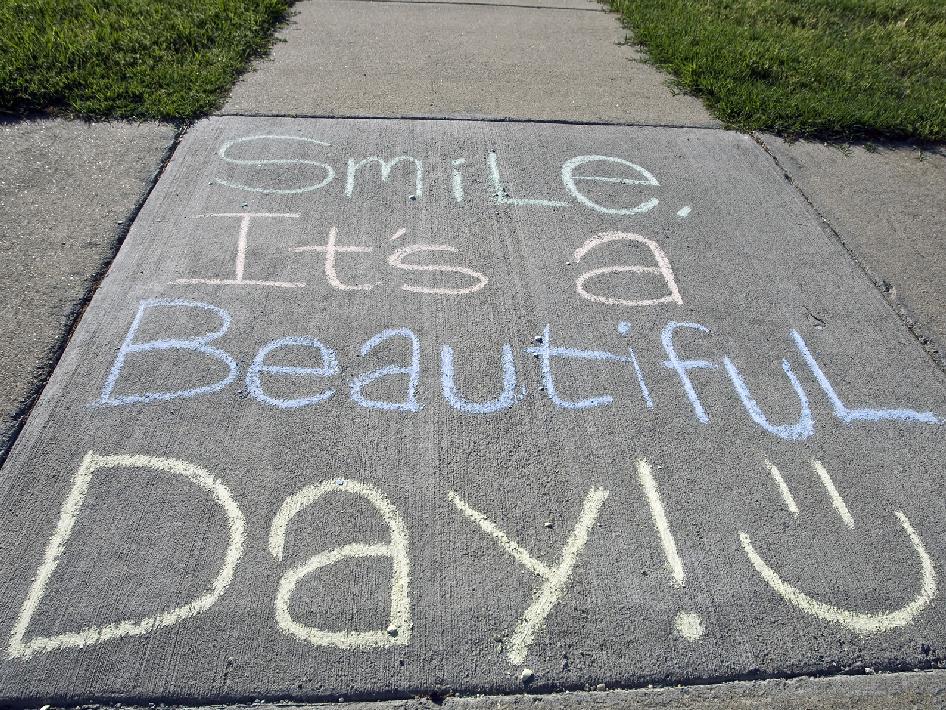 Smile.
It's a
Beautiful
Day!